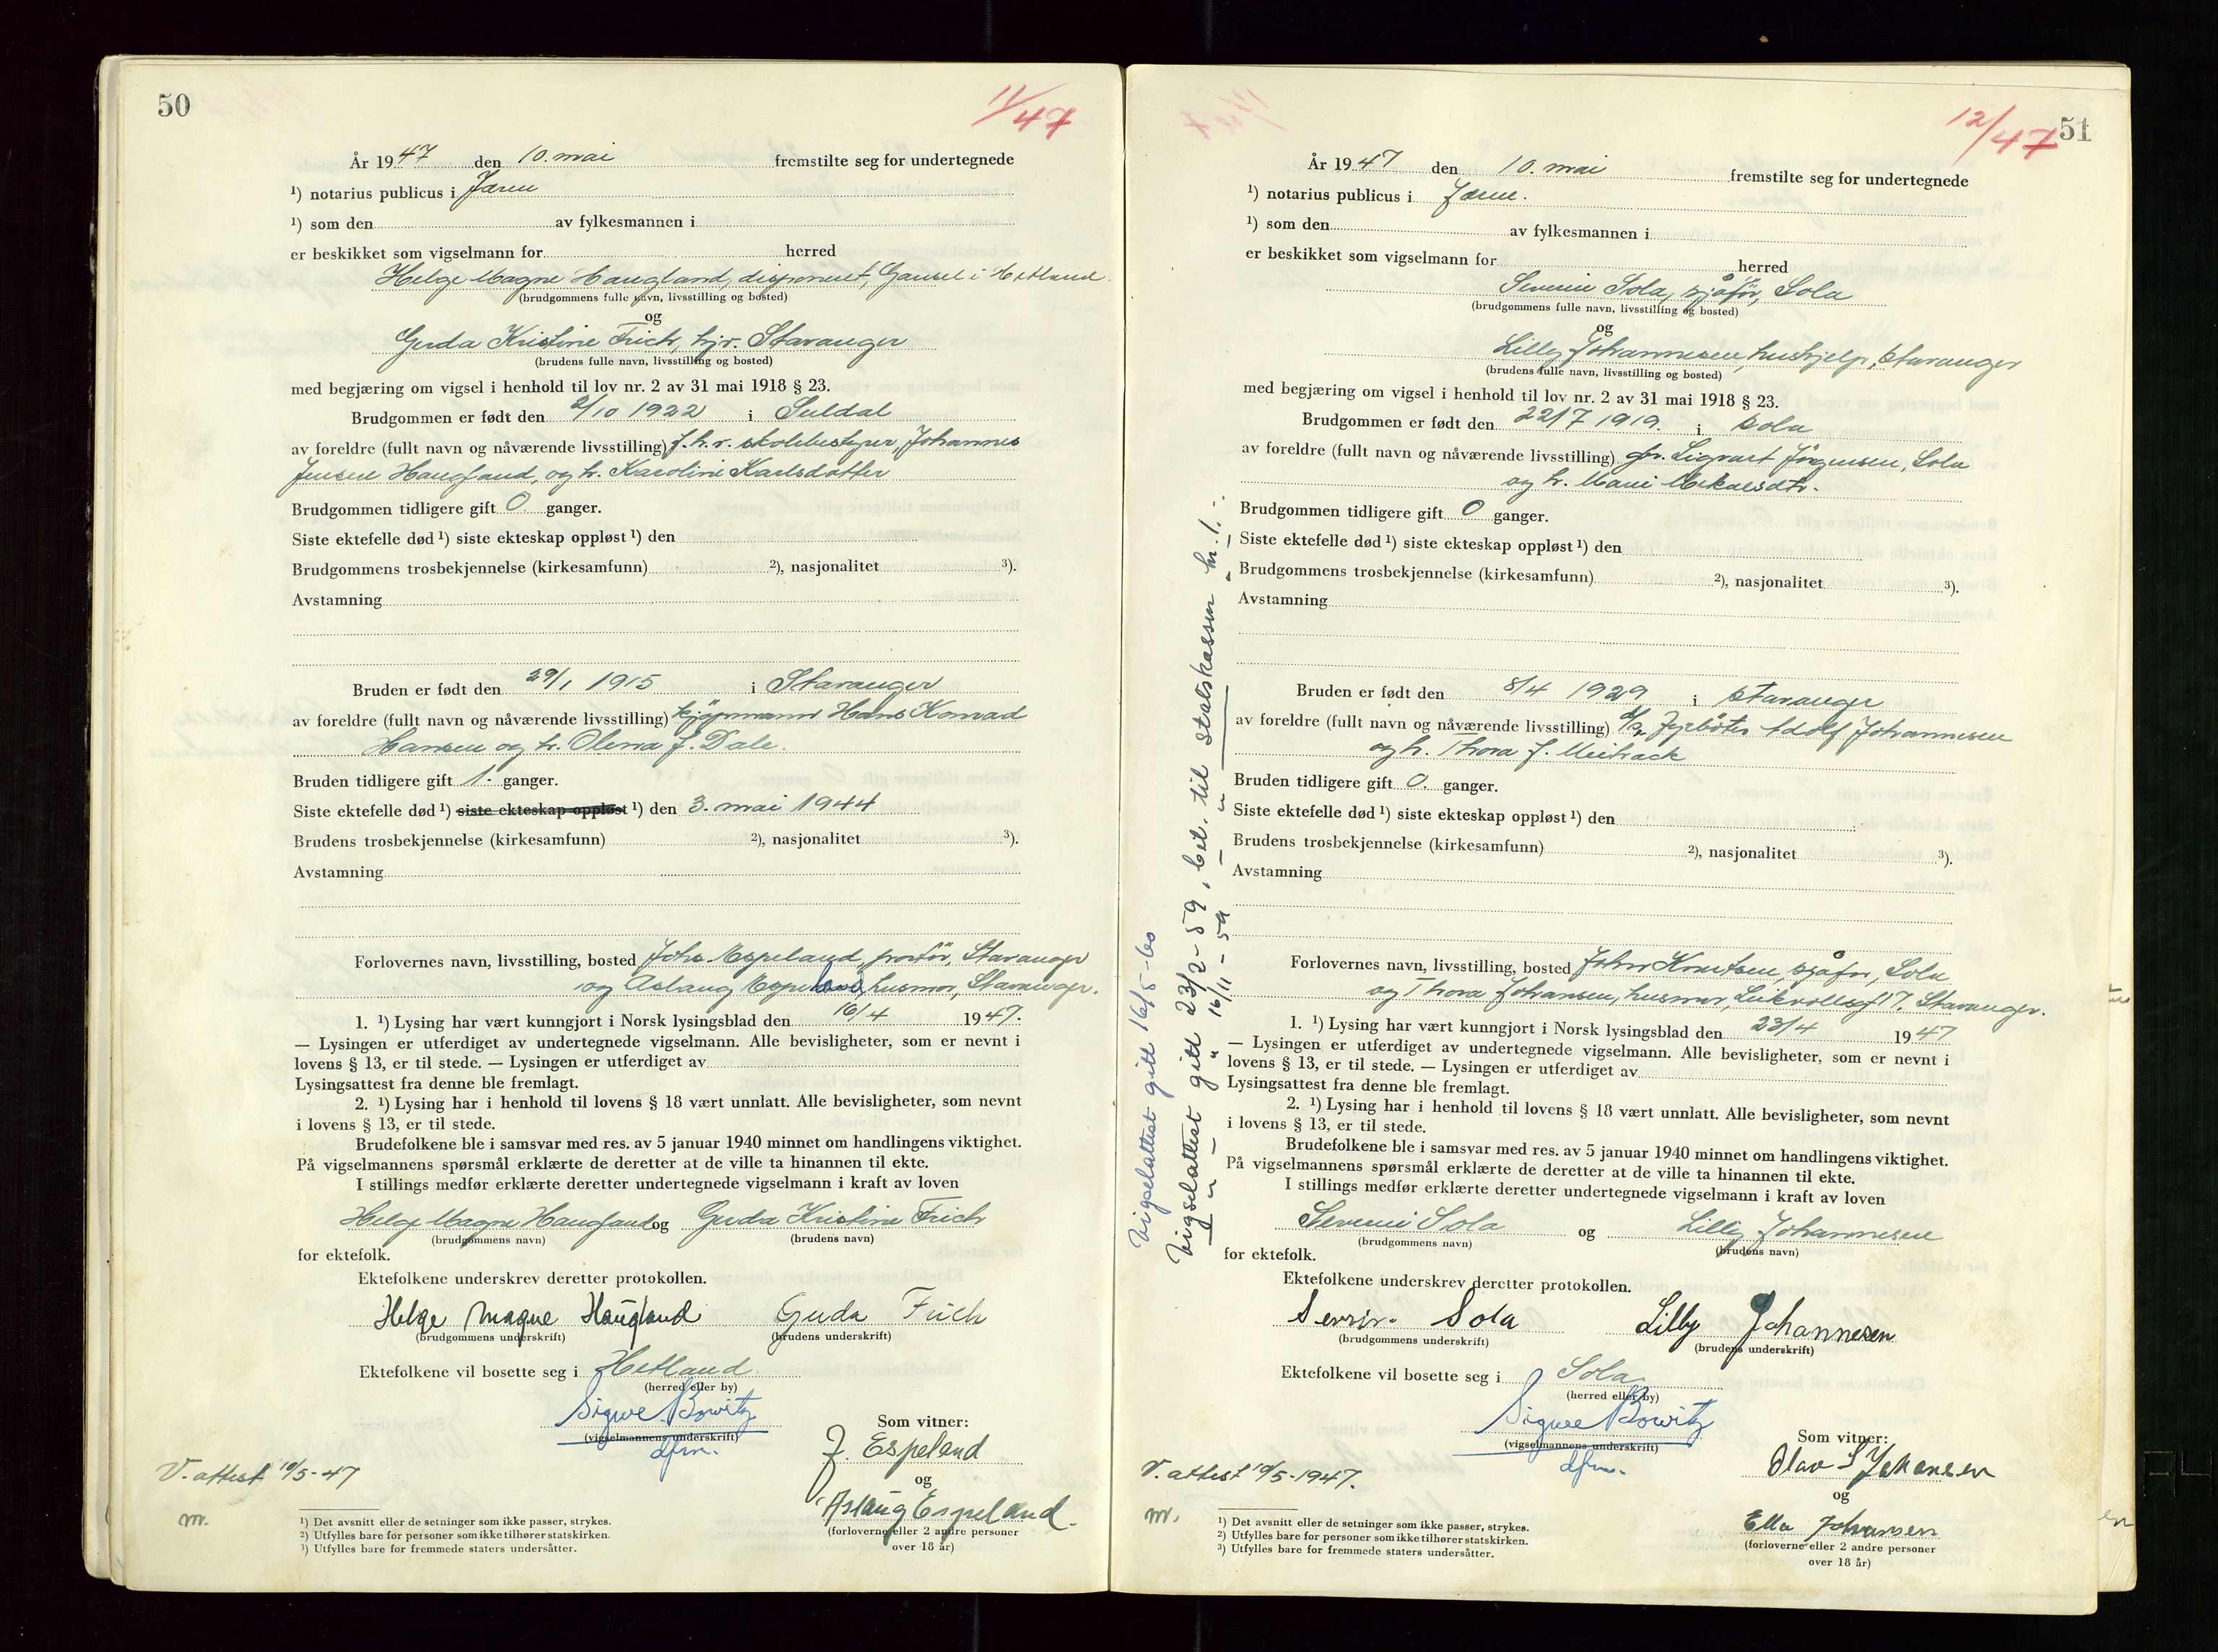 50
11/47
År 1947 den 10. mai fremstilte seg for undertegnede
¹) notarius publicus i Jæren
¹) som den av fylkesmannen i
er beskikket som vigselmann for herred
Helge Magne Haugland, disponent, Gausel i Hetland
(brudgommens fulle navn, livsstilling og bosted)
og
Gerda Kristine Frich, hjv. Stavanger
(brudens fulle navn, livsstilling og bosted)
med begjæring om vigsel i henhold til lov nr. 2 av 31 mai 1918 § 23.
Brudgommen er født den 2/10 1922 i Suldal
av foreldre (fullt navn og nåværende livsstilling) f.h.v. skolebestyrer, Johannes
Jensen Haugland, og h. Karoline Karlsdotter
Brudgommen tidligere gift 0 ganger.
Siste ektefelle død ¹) siste ekteskap oppløst ¹) den
Brudgommens trosbekjennelse (kirkesamfunn) ²), nasjonalitet ³).
Avstamning
Bruden er født den 29/1 1915 i Stavanger
av foreldre (fullt navn og nåværende livsstilling) kjøpmann Hans Konrad
Hansen og h. Olena f. Dale.
Bruden tidligere gift 1. ganger.
Siste ektefelle død ¹) siste ekteskap oppløst ¹) den 3. mai 1944
Brudens trosbekjennelse (kirkesamfunn) ²), nasjonalitet ³).
Avstamning
Forlovernes navn, livsstilling, bosted Johs Espeland, Stavanger
og Aslaug Espeland, husmor, Stavanger.
1. ¹) Lysing har vært kunngjort i Norsk lysingsblad den 16/4 1947.
— Lysingen er utferdiget av undertegnede vigselmann. Alle bevisligheter, som er nevnt i
lovens § 13, er til stede. — Lysingen er utferdiget av
Lysingsattest fra denne ble fremlagt.
2. ¹) Lysing har i henhold til lovens § 18 vært unnlatt. Alle bevisligheter, som nevnt
i lovens § 13, er til stede.
Brudefolkene ble i samsvar med res. av 5 januar 1940 minnet om handlingens viktighet.
På vigselmannens spørsmål erklærte de deretter at de ville ta hinannen til ekte.
I stillings medfør erklærte deretter undertegnede vigselmann i kraft av loven
Helge Magne Haugland og Gerda Kristine Frich
(brudgommens navn) (brudens navn)
for ektefolk.
Ektefolkene underskrev deretter protokollen.
Helge Magne Haugland Gerda Frich
(brudgommens underskrift) (brudens underskrift)
Ektefolkene vil bosette seg i Hetland
(herred eller by)
Sigwe Bowitz
(vigselmannens underskrift)
dfm.
Som vitner:
J. Espeland
og
Aslaug Espeland.
(forloverne eller 2 andre personer
over 18 år)
V. attest 10/5-47
m.
¹) Det avsnitt eller de setninger som ikke passer, strykes.
²) Utfylles bare for personer som ikke tilhører statskirken.
³) Utfylles bare for fremmede staters undersåtter.
12/47
51
År 1947 den 10. mai fremstilte seg for undertegnede
¹) notarius publicus i Jæren.
¹) som den av fylkesmannen i
er beskikket som vigselmann for herred
Severin Sola, sjåfør, Sola
(brudgommens fulle navn, livsstilling og bosted)
og
Lilly Johannesen, hushjelp, Stavanger
(brudens fulle navn, livsstilling og bosted)
med begjæring om vigsel i henhold til lov nr. 2 av 31 mai 1918 § 23.
Brudgommen er født den 22/7 1919. i Sola
av foreldre (fullt navn og nåværende livsstilling) gbr. Sigvart Jørgensen, Sola
og h. Marie Mikalsdtr.
Brudgommen tidligere gift 0 ganger.
Siste ektefelle død ¹) siste ekteskap oppløst ¹) den
Brudgommens trosbekjennelse (kirkesamfunn) ²), nasjonalitet ³).
Avstamning
Bruden er født den 8/4 1929 i Stavanger
av foreldre (fullt navn og nåværende livsstilling) fyrbøter Adolf Johannesen
og h. Thora f.
Bruden tidligere gift 0. ganger.
Siste ektefelle død ¹) siste ekteskap oppløst ¹) den
Brudens trosbekjennelse (kirkesamfunn) ²), nasjonalitet ³).
Avstamning
Forlovernes navn, livsstilling, bosted John Knutsen, sjåfør, Sola
og Thora Johansen, husmor, 17. Stavanger.
1. ¹) Lysing har vært kunngjort i Norsk lysingsblad den 23/4 1947
— Lysingen er utferdiget av undertegnede vigselmann. Alle bevisligheter, som er nevnt i
lovens § 13, er til stede. — Lysingen er utferdiget av
Lysingsattest fra denne ble fremlagt.
2. ¹) Lysing har i henhold til lovens § 18 vært unnlatt. Alle bevisligheter, som nevnt
i lovens § 13, er til stede.
Brudefolkene ble i samsvar med res. av 5 januar 1940 minnet om handlingens viktighet.
På vigselmannens spørsmål erklærte de deretter at de ville ta hinannen til ekte.
I stillings medfør erklærte deretter undertegnede vigselmann i kraft av loven
Severin Sola og Lilly Johannesen
(brudgommens navn) (brudens navn)
for ektefolk.
Ektefolkene underskrev deretter protokollen.
Severin Sola Lilly Johannesen
(brudgommens underskrift) (brudens underskrift)
Ektefolkene vil bosette seg i Sola
(herred eller by)
Sigwe Bowitz
(vigselmannens underskrift)
dfm.
Som vitner:
Olav S Johansen
og
Ella Johansen
(forloverne eller 2 andre personer
over 18 år)
V. attest 10/5-1947.
m.
¹) Det avsnitt eller de setninger som ikke passer, strykes.
²) Utfylles bare for personer som ikke tilhører statskirken.
³) Utfylles bare for fremmede staters undersåtter.
Vigselattest gitt 16/5-60
Vigselattest gitt 23/2-59, bet. til statskassen kr. 1.-
— " — " 16/11-59 — " — " —